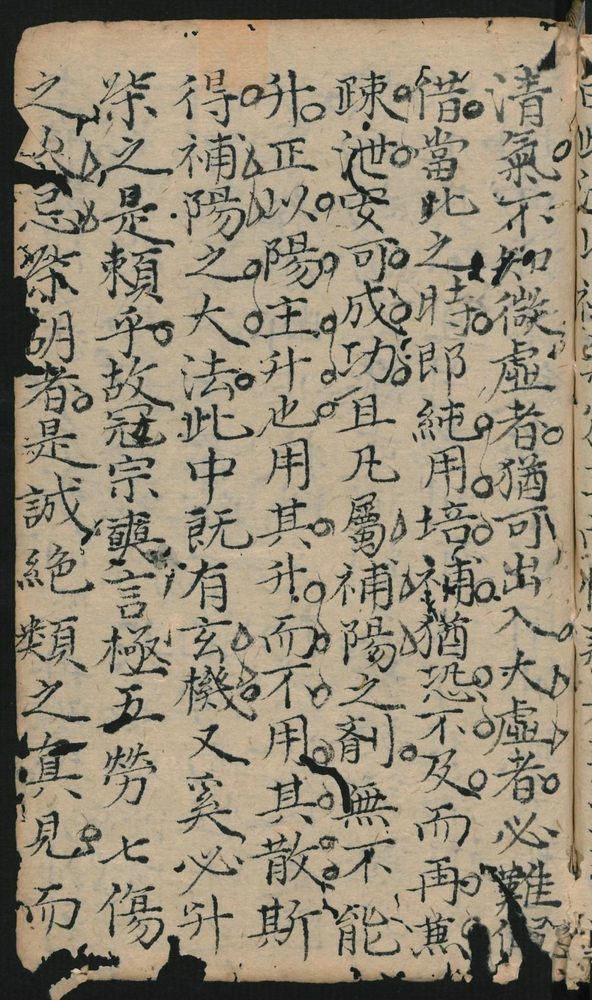 清氣不知微虛者猶可出入大虛者必難
借當此之時即純用培補猶恐不及而再兼
疎泄安可成功且凡屬補陽之劑無不能
升正以陽主升也用其升而不用其散斯
得補陽之大法此中既有玄機又奚必升
柴之是賴乎故冠宗奭言極五勞七傷
之大忌柴胡者是誠絕類之真見而